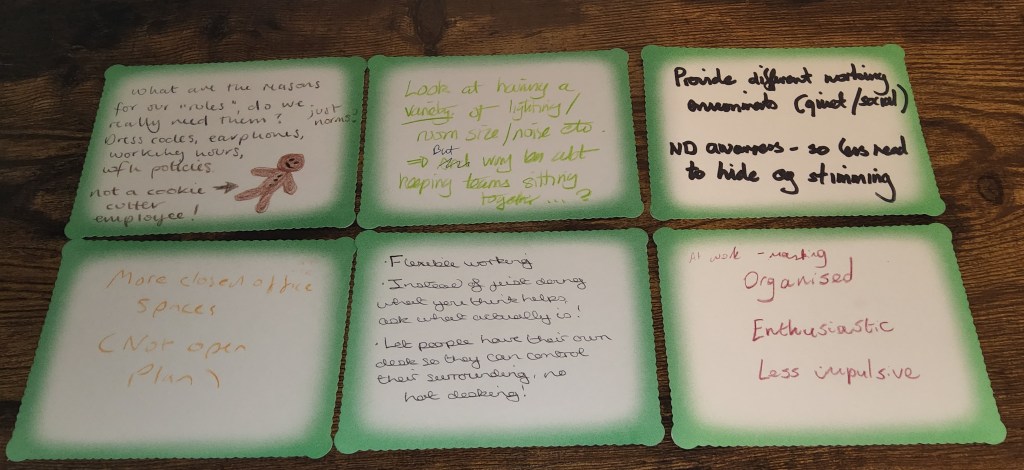 what are the reasons
for our "rules", do we
really need them? just
norms?
Dress codes, earphones,
working hours,
wfh policies.
not a cookie
cutter
employee!
Look at having a
variety of lighting/
room size/noise etc.
But
⇒ way be cult
keeping teams sitting
together...?
Provide different working
environments (quiet/social)
ND awareness - so less need
to hide eg stimming
More closed office
spaces
(Not open
Plan)
· Flexible working
· Instead of just doing
what you think helps,
ask what actually is!
· Let people have their own
desk so they can control
their surrounding, no
hot desking!
At work - masking
Organised
Enthusiastic
Less impulsive